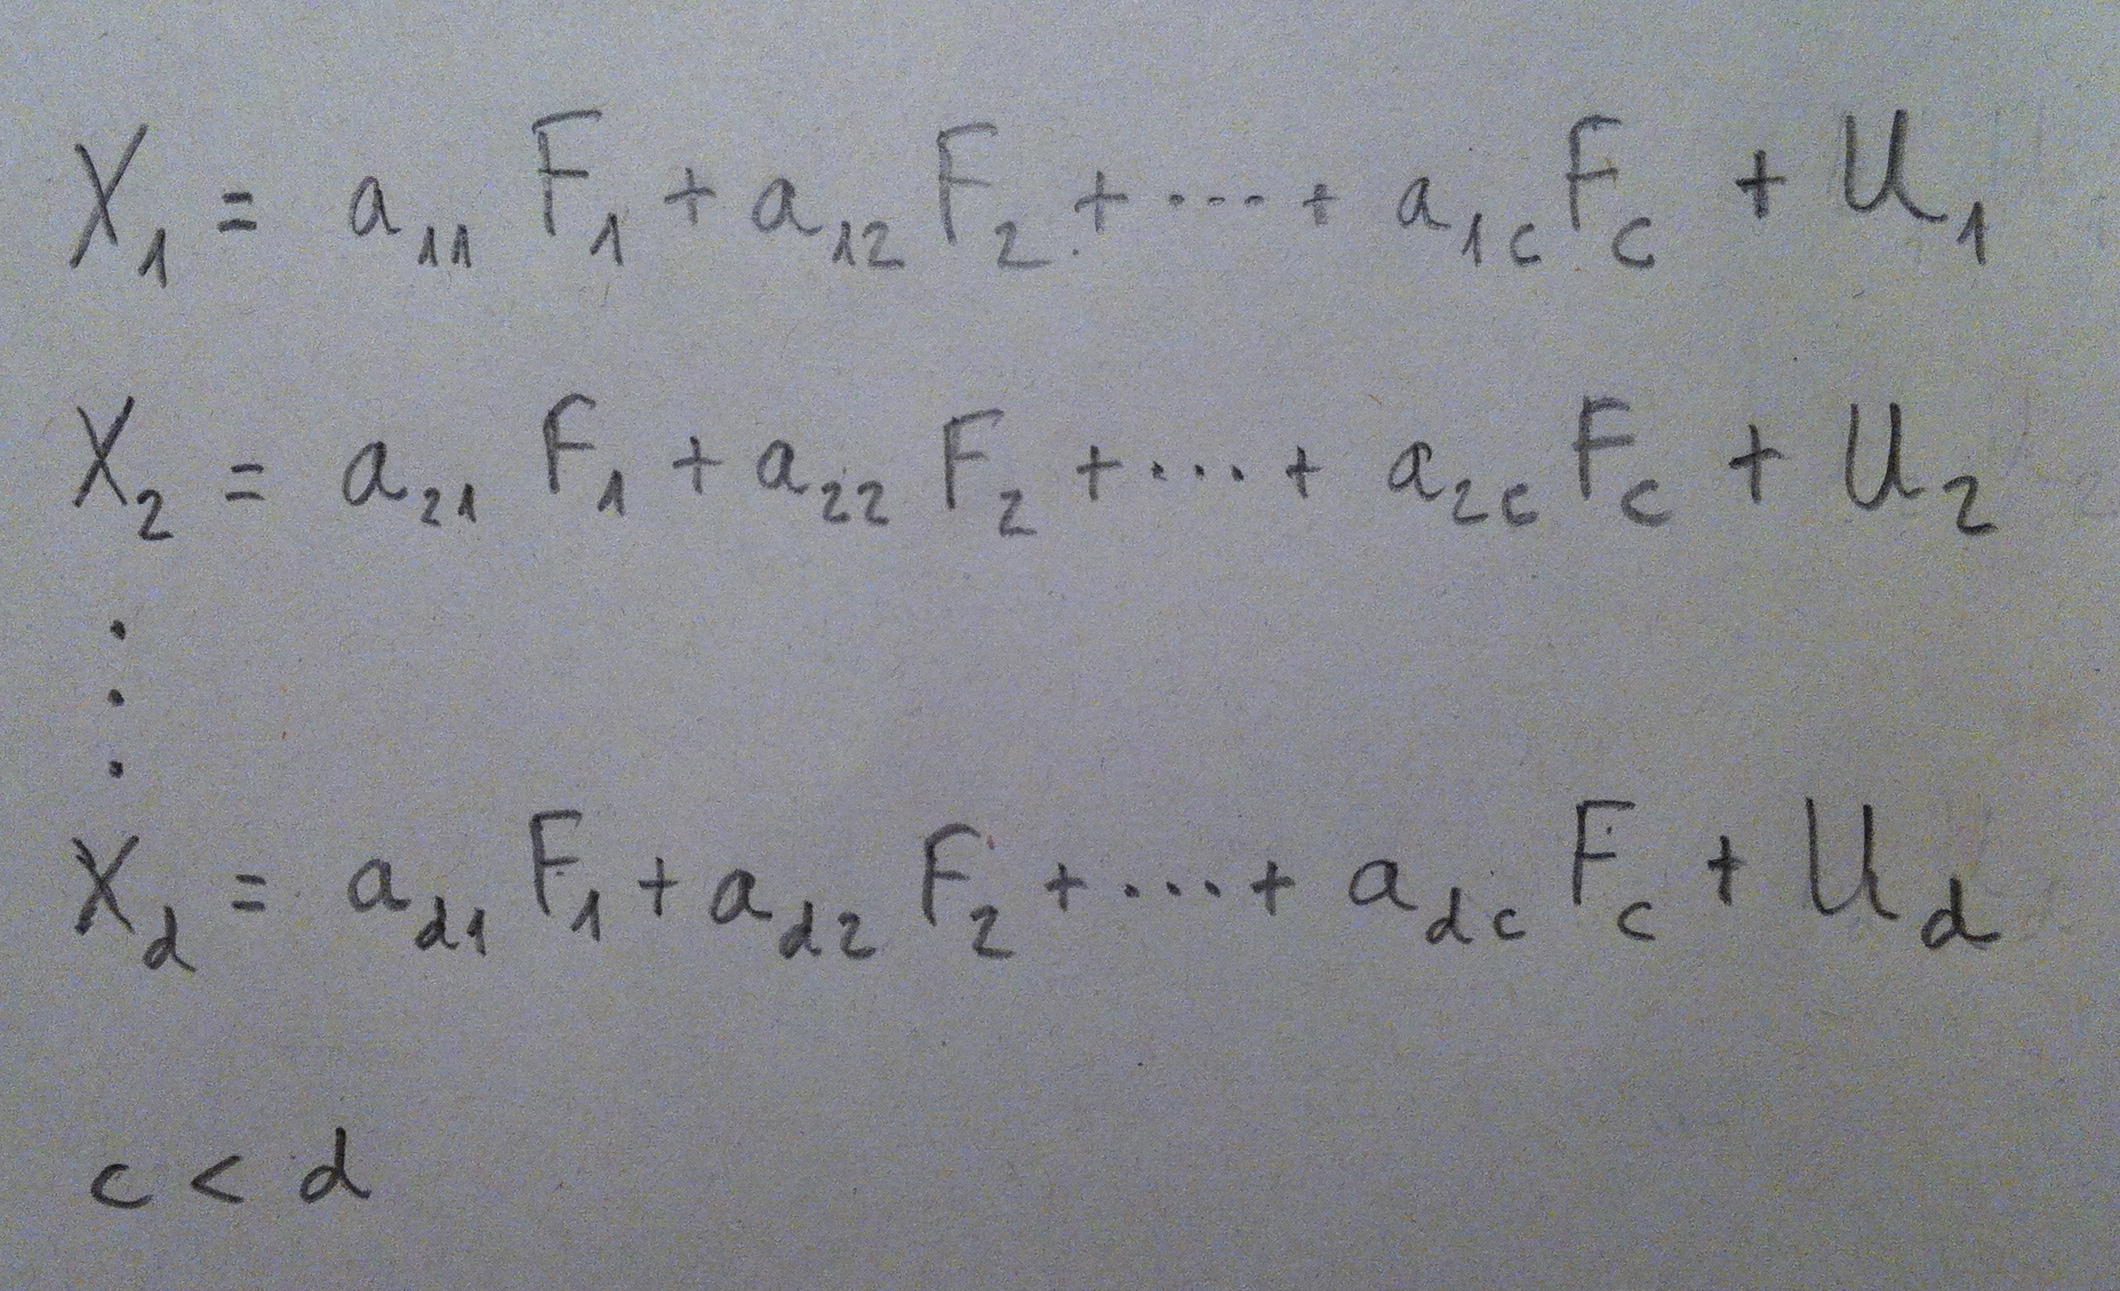 X₁ = a₁₁ F₁ + a₁₂ F₂ + ···· + a₁c Fc + U₁
X₂ = a₂₁ F₁ + a₂₂ F₂ + ··· + a₂c Fc + U₂
⋮
X_d = a_d1 F₁ + a_d2 F₂ + ··· + a_dc Fc + U_d
c < d